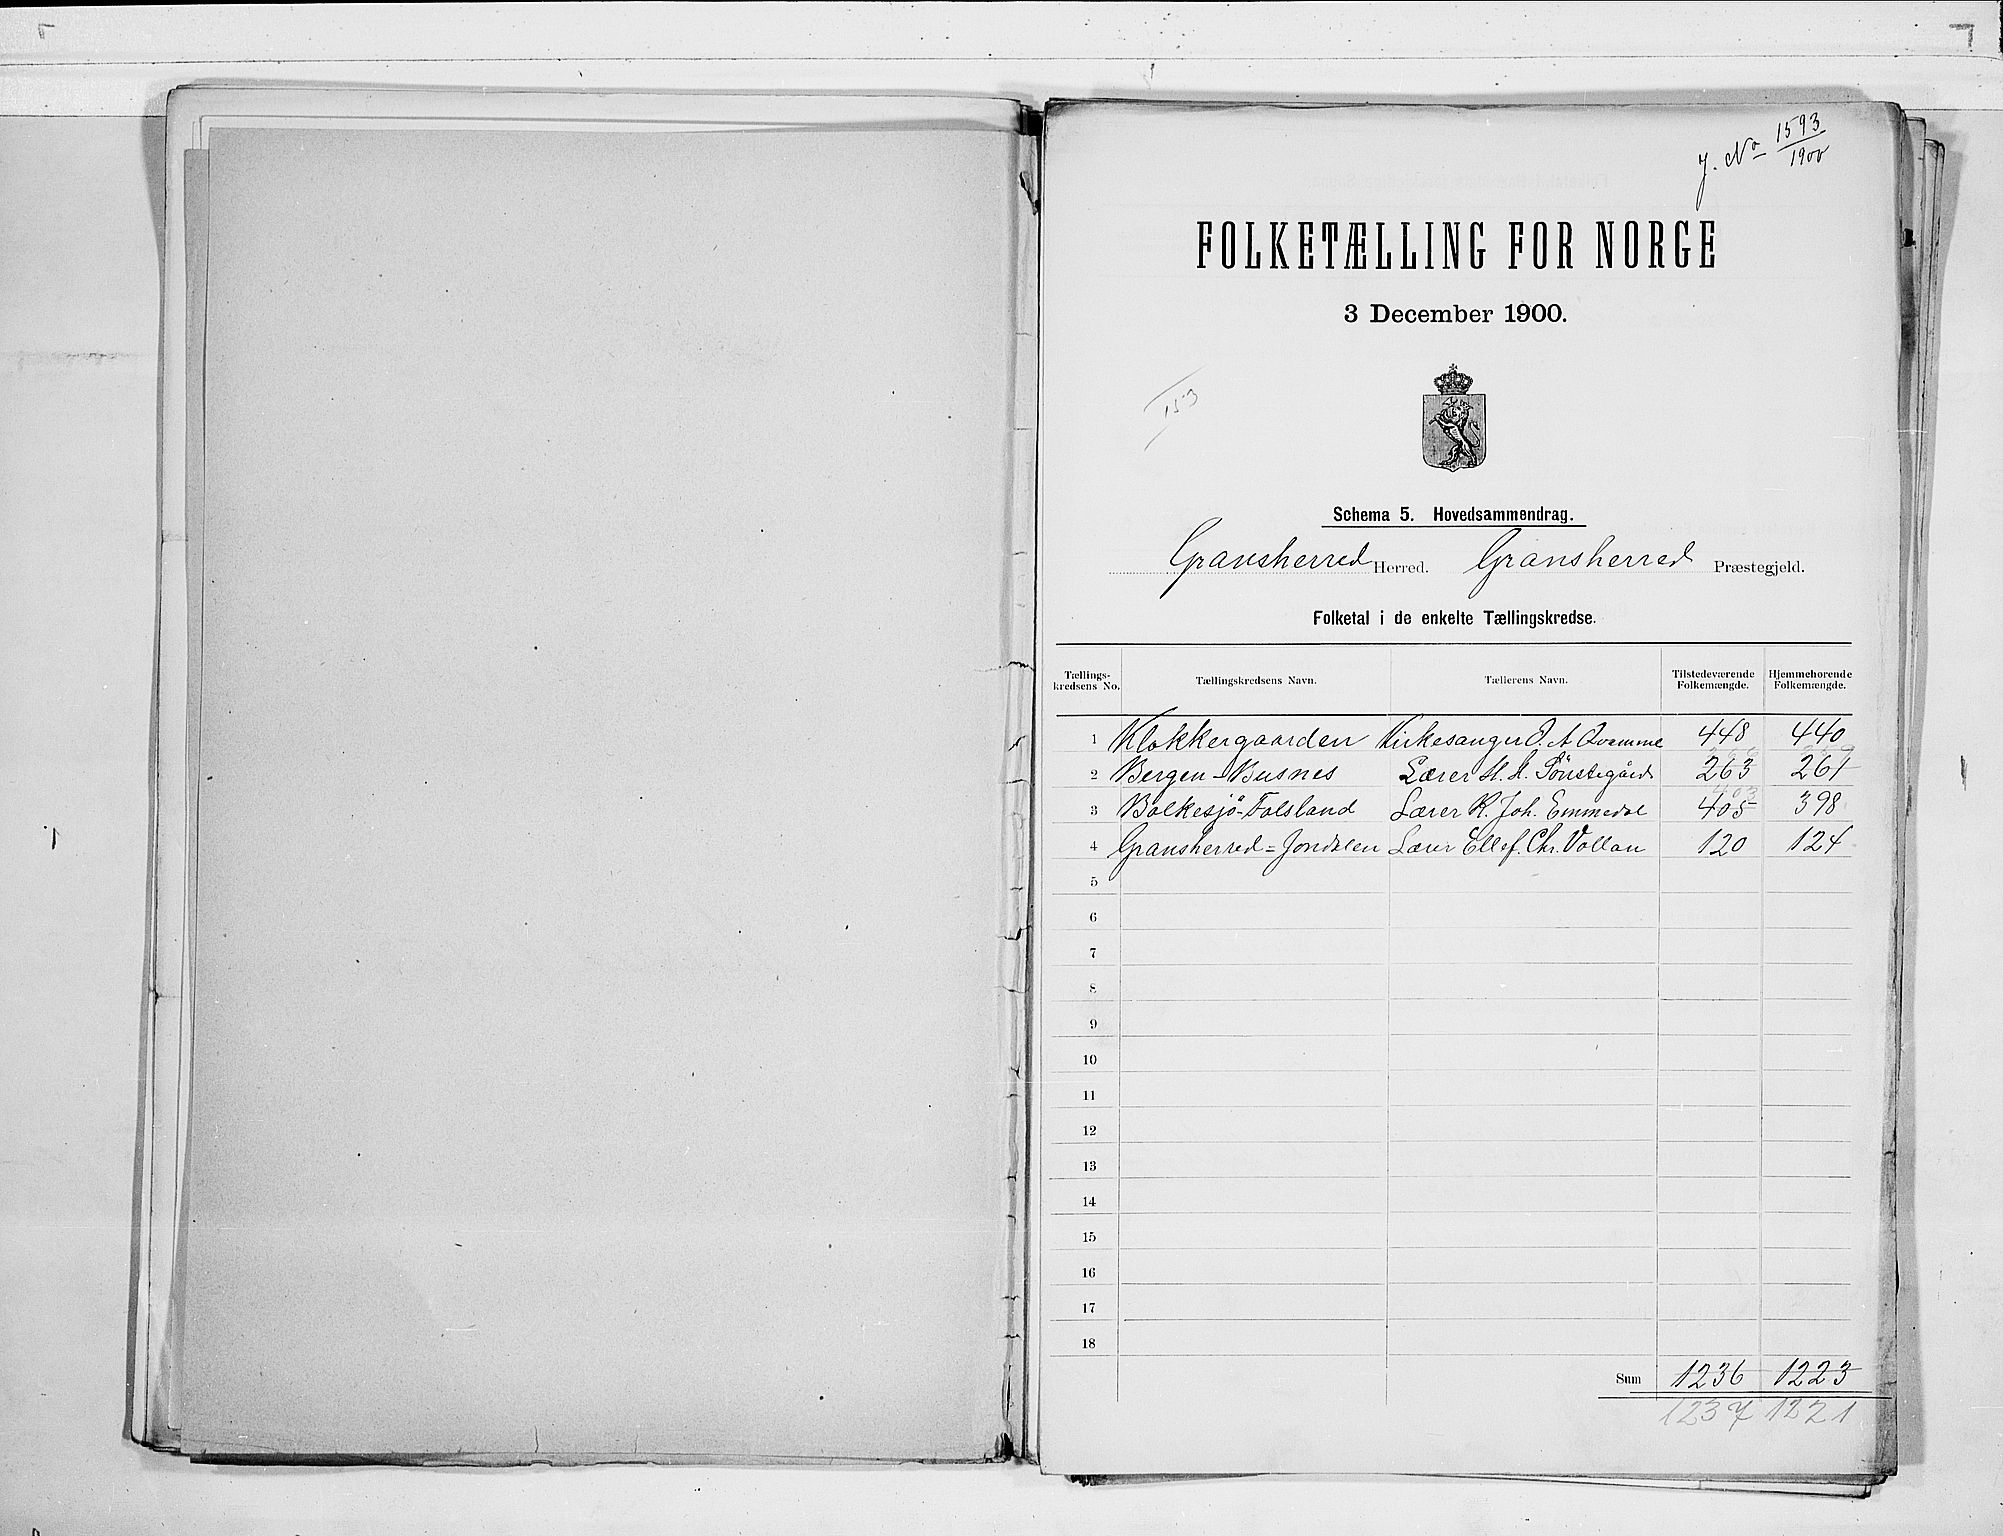 J. No 1593
1900
FOLKETÆLLING FOR NORGE
3 December 1900.
153
Schema 5. Hovedsammendrag.
Gransherred Herred. Gransherred Præstegjeld.
Folketal i de enkelte Tællingskredse.
Tællings-kredsens No. Tællingskredsens Navn. Tællerens Navn. Tilstedeværende Folkemængde. Hjemmehørende Folkemængde.
1 Klokkergaarden Kirkesanger O. A Qvamme 448 440
2 Bergen-Busnes Lærer H. H. Sönstegård 263 261
403
3 Bolkesjö-Folsland Lærer K. Joh. Emmedal 405 398
4 Gransherred=Jondalen Lærer Ellef. Chr. Vollan 120 124
5
6
7
8
9
10
11
12
13
14
15
16
17
18
Sum 1236 1223
1237 1221